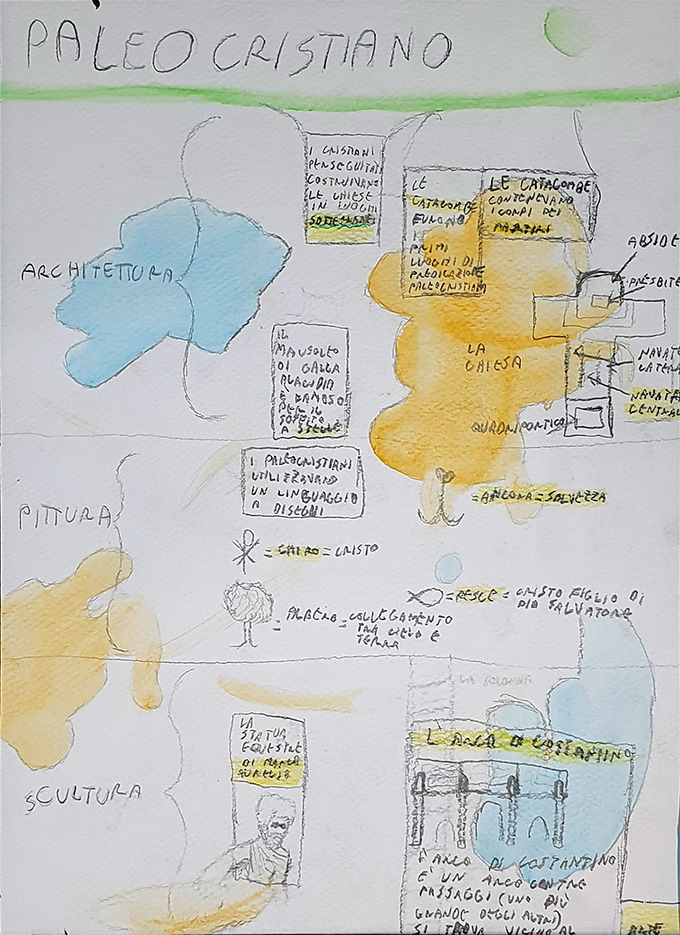 PALEOCRISTIANO
ARCHITETTURA
I CRISTIANI
PERSEGUITATI
COSTRUIVANO
LE CHIESE
IN LUOGHI
SOTTERRANEI
LE
CATACOMBE
FURONO
I
PRIMI
LUOGHI DI
PREDICAZIONE
PALEOCRISTIANA
LE CATACOMBE
CONTENEVANO
I CORPI DEI
MARTIRI
IL
MAUSOLEO
DI GALLA
PLACIDIA
È FAMOSO
PER IL
SOFFITTO
A STELLE
LA
CHIESA
ABSIDE
PRESBITE
NAVATE
LATERA
NAVATA
CENTRAL
QUADRIPORTICO
PITTURA
I PALEOCRISTIANI
UTILIZZAVANO
UN LINGUAGGIO
A DISEGNI
= ANCORA = SALVEZZA
= CHIRO = CRISTO
= PESCE = CRISTO FIGLIO DI
DIO SALVATORE
= ALBERO = COLLEGAMENTO
TRA CIELO E
TERRA
SCULTURA
LA
STATUA
EQUESTRE
DI MARCO
AURELIO
LA COLONNA
L'ARCO DI COSTANTINO
L'ARCO DI COSTANTINO
E' UN ARCO CON TRE
PASSAGGI (UNO PIÙ
GRANDE DEGLI ALTRI)
SI TROVA VICINO AL
ARTE